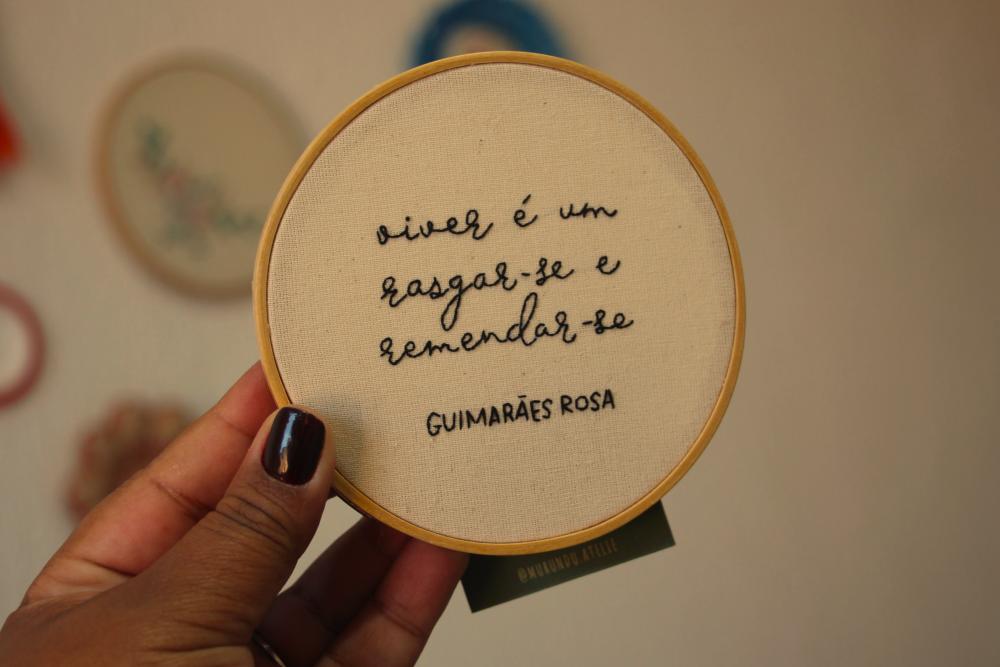 viver é um
rasgar-se e
remendar-se
GUIMARÃES ROSA
@MURUNDU.ATELIE